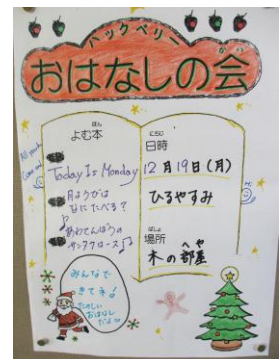 ハックベリー
おはなしの会
かい
よむ本
ほん
Today Is Monday
月ようびは
なにたべる?
あわてんぼうの
サンタクロース
にちじ
日時
12月19日(月)
ひるやすみ
ばしょ
場所
木の部屋
へや
みんなで
きてネ!
たのしい
おはなし
だよ